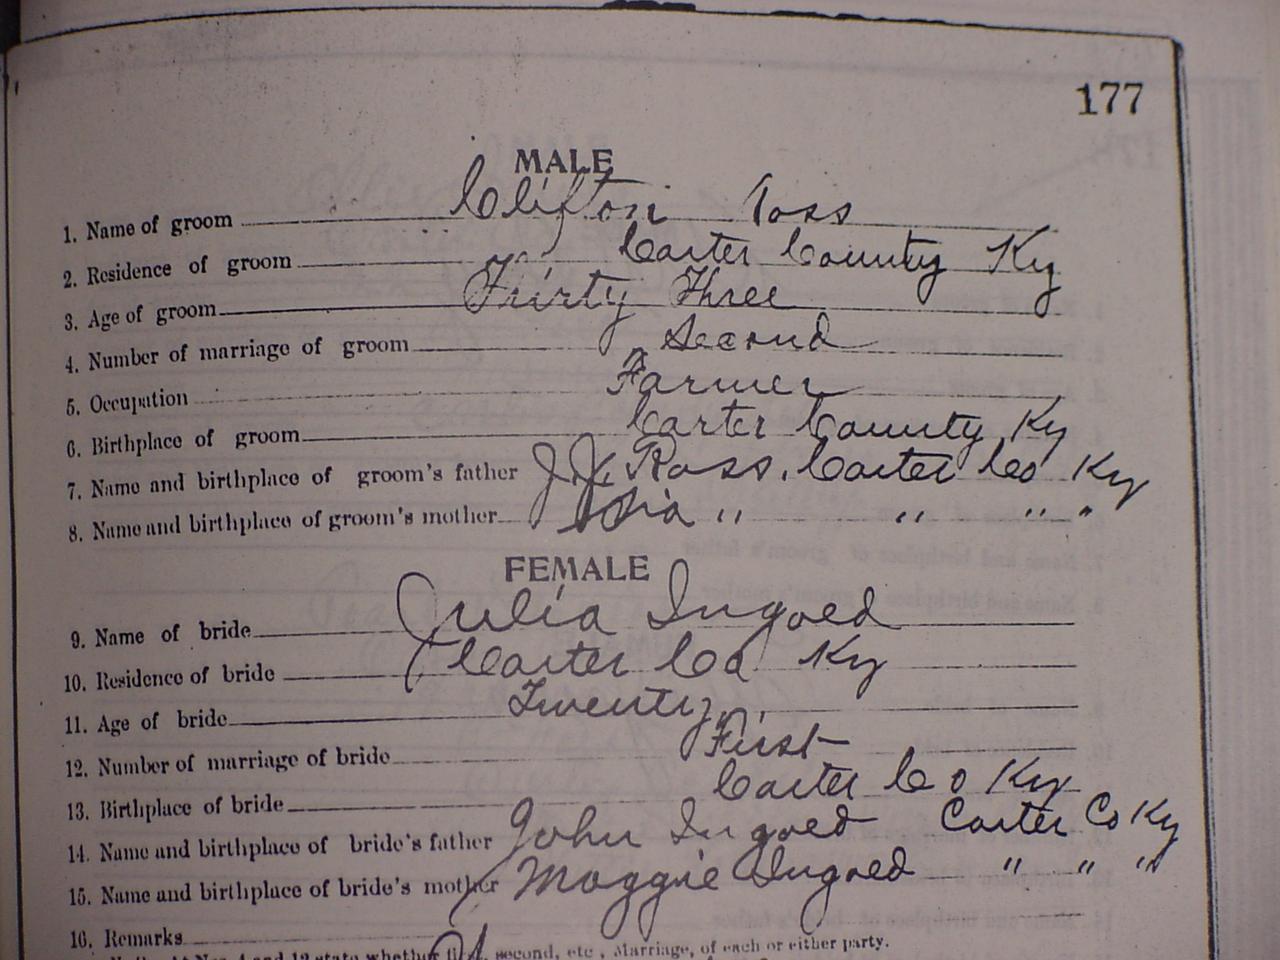 177
MALE
1. Name of groom Clifton Ross
2. Residence of groom Carter County Ky
3. Age of groom Thirty Three
4. Number of marriage of groom Second
5. Occupation Farmer
6. Birthplace of groom Carter County Ky
7. Name and birthplace of groom's father Ross. Carter Co Ky
8. Name and birthplace of groom's mother " " " "
FEMALE
9. Name of bride Julia Ingoed
10. Residence of bride Carter Co Ky
11. Age of bride Twenty
12. Number of marriage of bride First
13. Birthplace of bride Carter Co Ky
14. Name and birthplace of bride's father John Ingoed Carter Co Ky
15. Name and birthplace of bride's mother Maggie Ingoed " " "
16. Remarks
state whether first, second, etc., Marriage, of each or either party.